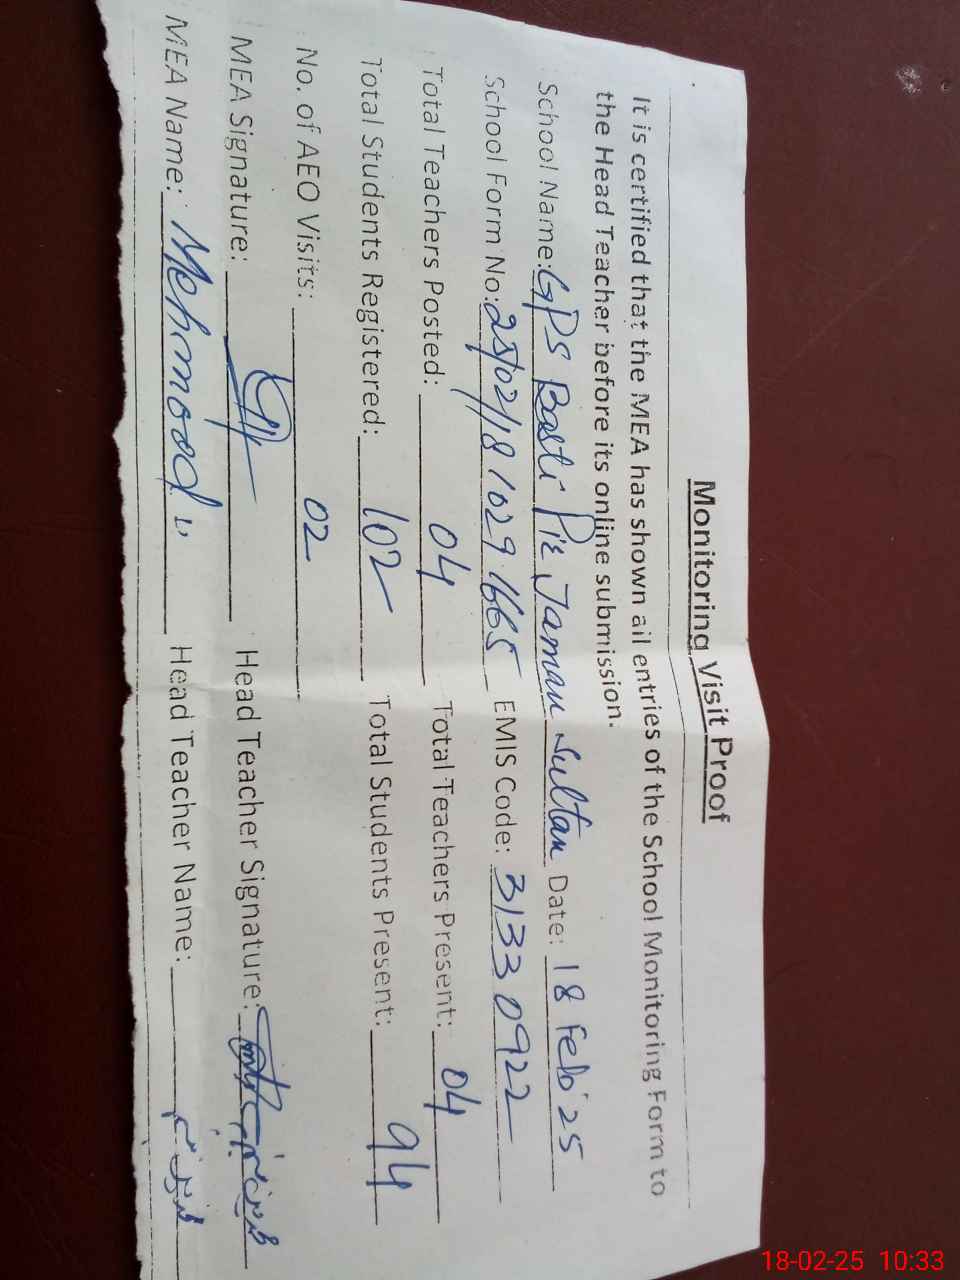 Monitoring Visit Proof
It is certified that the MEA has shown all entries of the School Monitoring Form to
the Head Teacher before its online submission.
School Name: GPS Basti Pir Jaman Sultan Date: 18 Feb'25
School Form No: 25/02/18 1029 1665 EMIS Code: 31330922
Total Teachers Posted: 04 Total Teachers Present: 04
Total Students Registered: 102 Total Students Present: 94
No. of AEO Visits: 02
MEA Signature: Head Teacher Signature:
MEA Name: Mehmood Head Teacher Name:
18-02-25 10:33